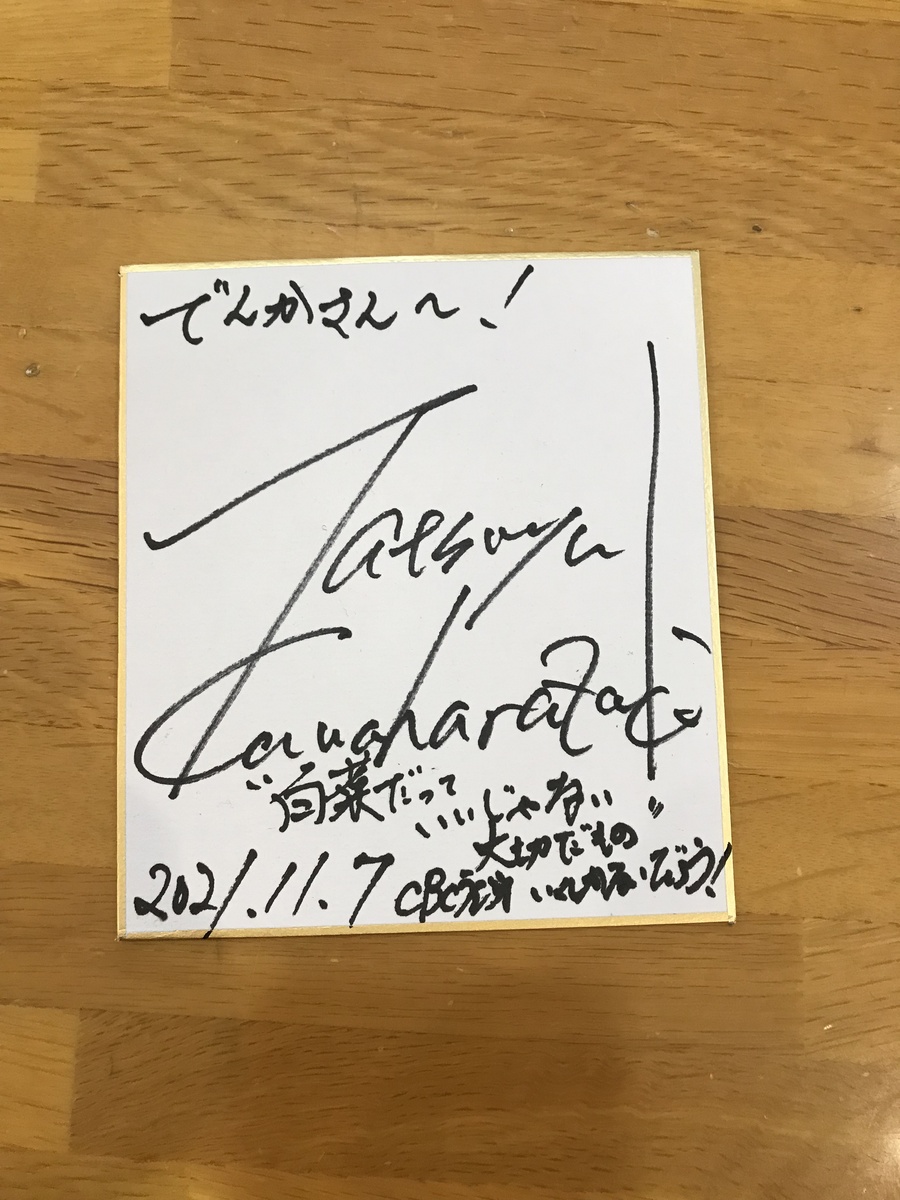 でんかさん〜!
Tatsuya
Kawaharazaki
"白菜だって
いいじゃない"
大切だもの
2021.11.7 CBCラジオ